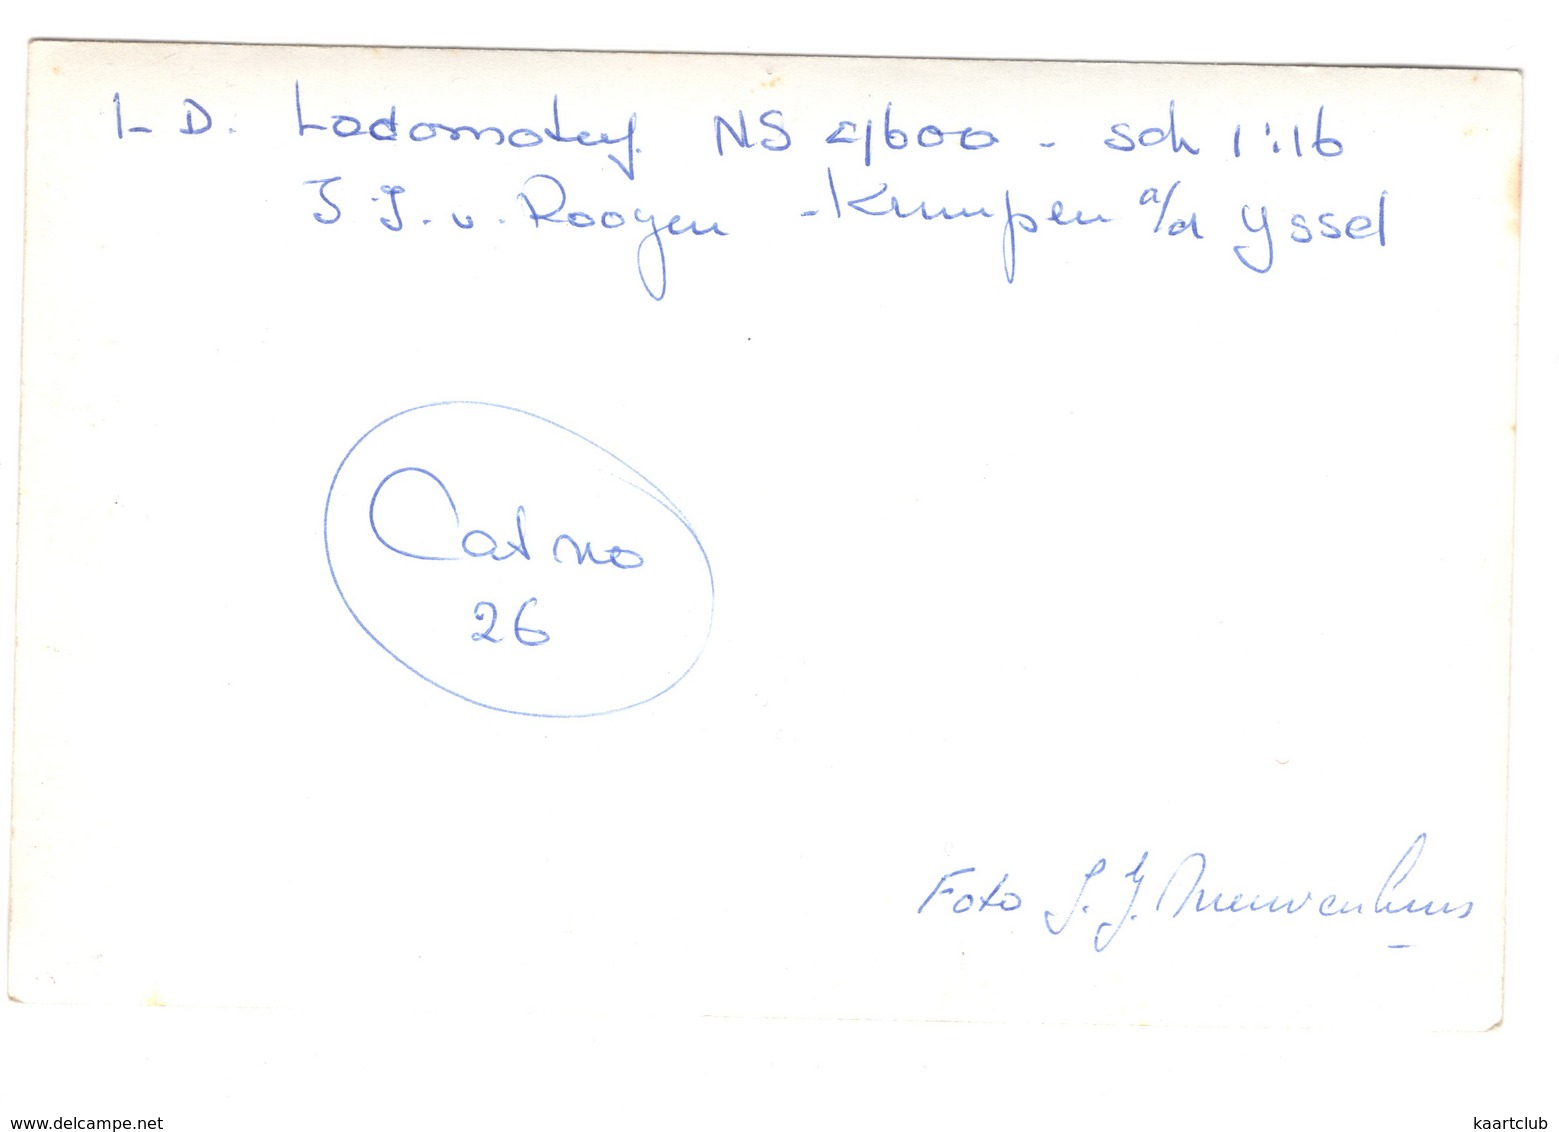 L D. Locomotief NS 4600 - sch 1:16
J. J. v. Rooyen - Krimpen a/d Yssel
Cat no
26
Foto S. J. Nieuwenhuis
www.delcampe.net
kaartclub